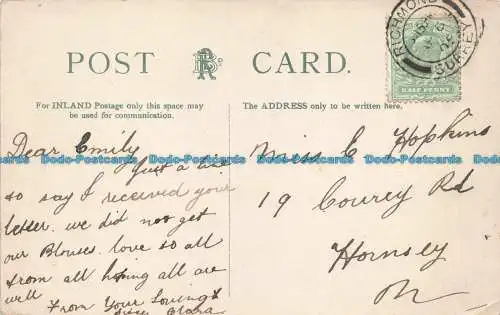 POST CARD.
RICHMOND
SURREY
HALF PENNY
For INLAND Postage only this space may
be used for communication.
The ADDRESS only to be written here.
Dear Emily
Just a line
to say I received your
letter. we did not get
our Blouses. love to all
from all hoping all are
well
From Your Loving
Clara
Miss E Hopkins
19 Courcy Rd
Hornsey
N
Dodo-Postcards Dodo-Postcards Dodo-Postcards Dodo-Postcards Dodo-Postcards